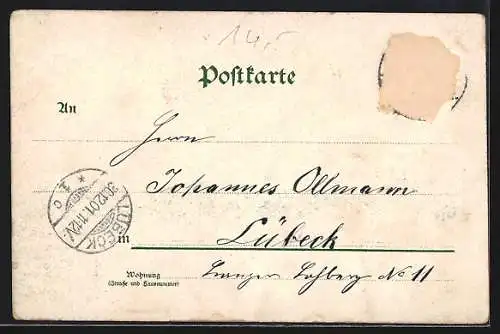 14,-
Postkarte
An
Herrn
Johannes Ollmann
in Lübeck
Wohnung
(Straße und Hausnummer)
Langer Lohberg No 11
LÜBECK
30.12.01. 11-12V.
* 1 c